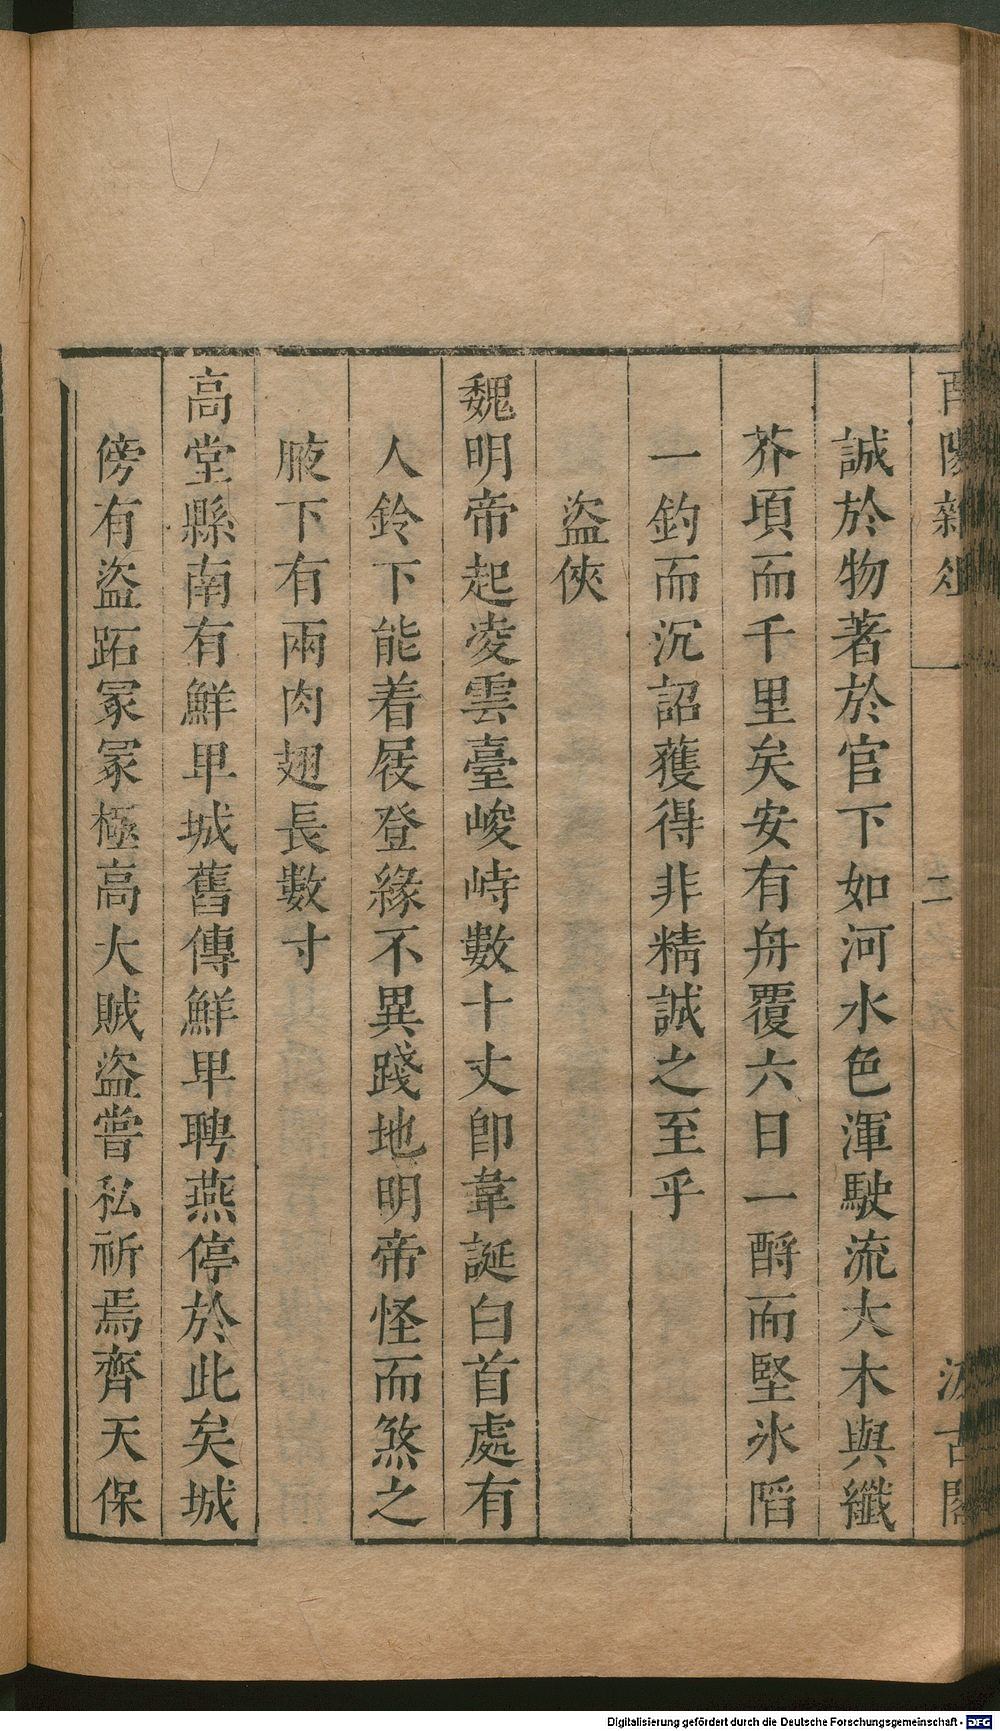 酉陽雜俎
二
汲古閣
誠於物著於官下如河水色渾駛流大木與纖
芥頃而千里矣安有舟覆六日一酹而堅氷陷
一釣而沉詔獲得非精誠之至乎
盜俠
魏明帝起凌雲臺峻峙數十丈卽韋誕白首處有
人鈴下能着屐登緣不異踐地明帝怪而煞之
腋下有兩肉翅長數寸
高堂縣南有鮮𤰞城舊傳鮮𤰞聘燕停於此矣城
傍有盜跖冢冢極高大賊盜嘗私祈焉齊天保
Digitalisierung gefördert durch die Deutsche Forschungsgemeinschaft - DFG